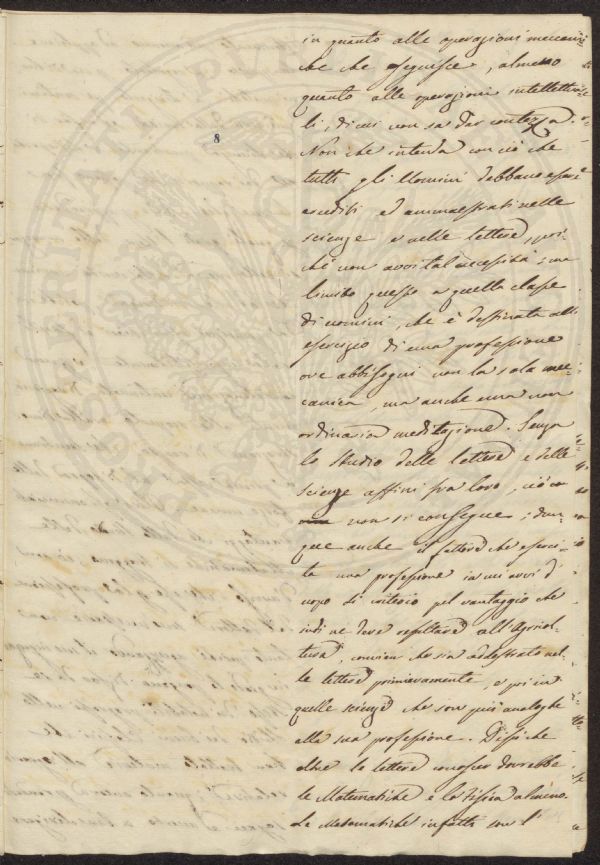 in quanto alle operazioni meccani=
che che eseguisce, almeno
quanto alle operazioni intellettua=
li, di cui non sa dar contezza.
Non che intenda con ciò che
tutti gli Uomini debbano essere
eruditi ed ammaestrati nelle
scienze e nelle lettere, poi-
chè non avvi tal necessità; ma
limito questo a quella classe
di uomini, che è destinata all'
esercizio di una professione
ove abbisogni non la sola mec=
canica, ma anche una non
ordinaria meditazione. Senza
lo studio delle lettere e delle
scienze affini fra loro, ciò
non si consegue; dun
que anche il fattore che eserci-
ta una professione in cui avvi d'
uopo di criterio pel vantaggio che
indi ne deve resultare all'Agricol-
tura, convien che sia addestrato nel-
le lettere primieramente, e poi in
quelle scienze che son più analoghe
alla sua professione. Dissi che
oltre le lettere conoscer dovrebbe
le Matematiche e la Fisica almeno.
Le Matematiche infatti son l'
8